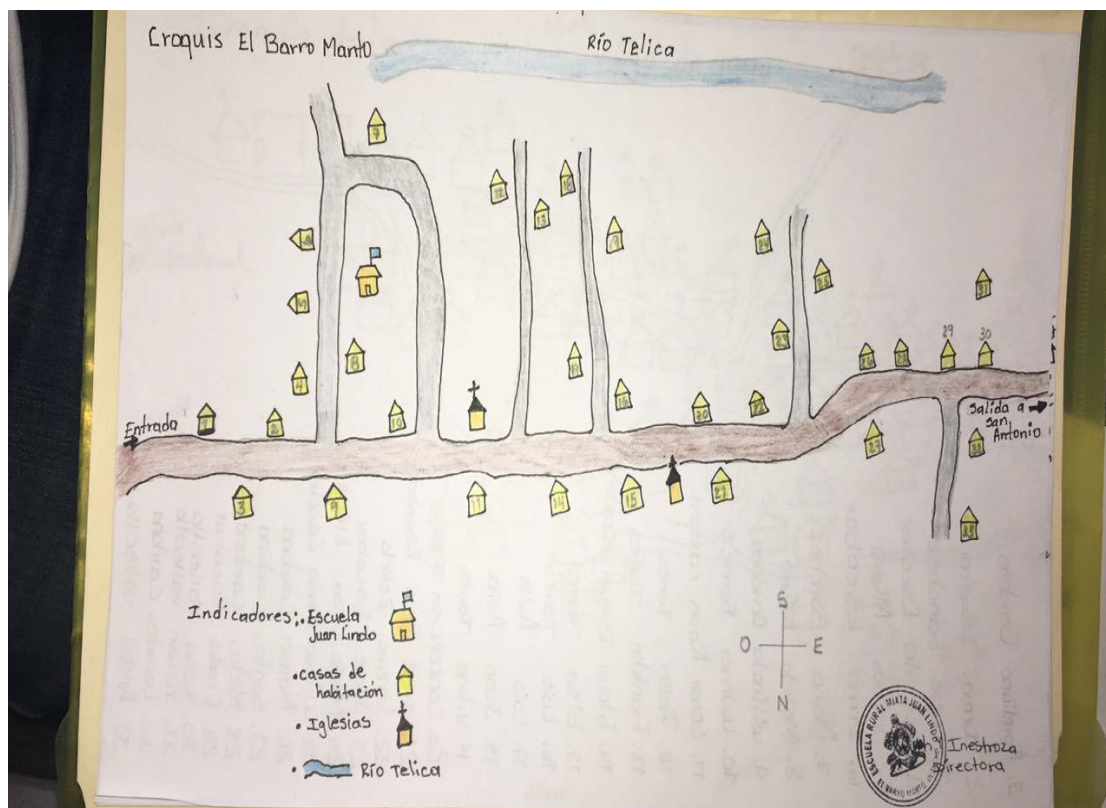 Croquis El Barro Manto
Río Telica
7
12
18
13
19
24
25
31
5
23
29
30
8
11
26
4
16
1
2
10
20
22
Entrada
Salida a
San
Antonio
27
3
9
14
15
21
Indicadores:
• Escuela
Juan Lindo
• casas de
habitación
• Iglesias
• Río Telica
S
O
E
N
ESCUELA RURAL MIXTA JUAN LINDO
EL BARRO MANTO
Inestroza
Directora